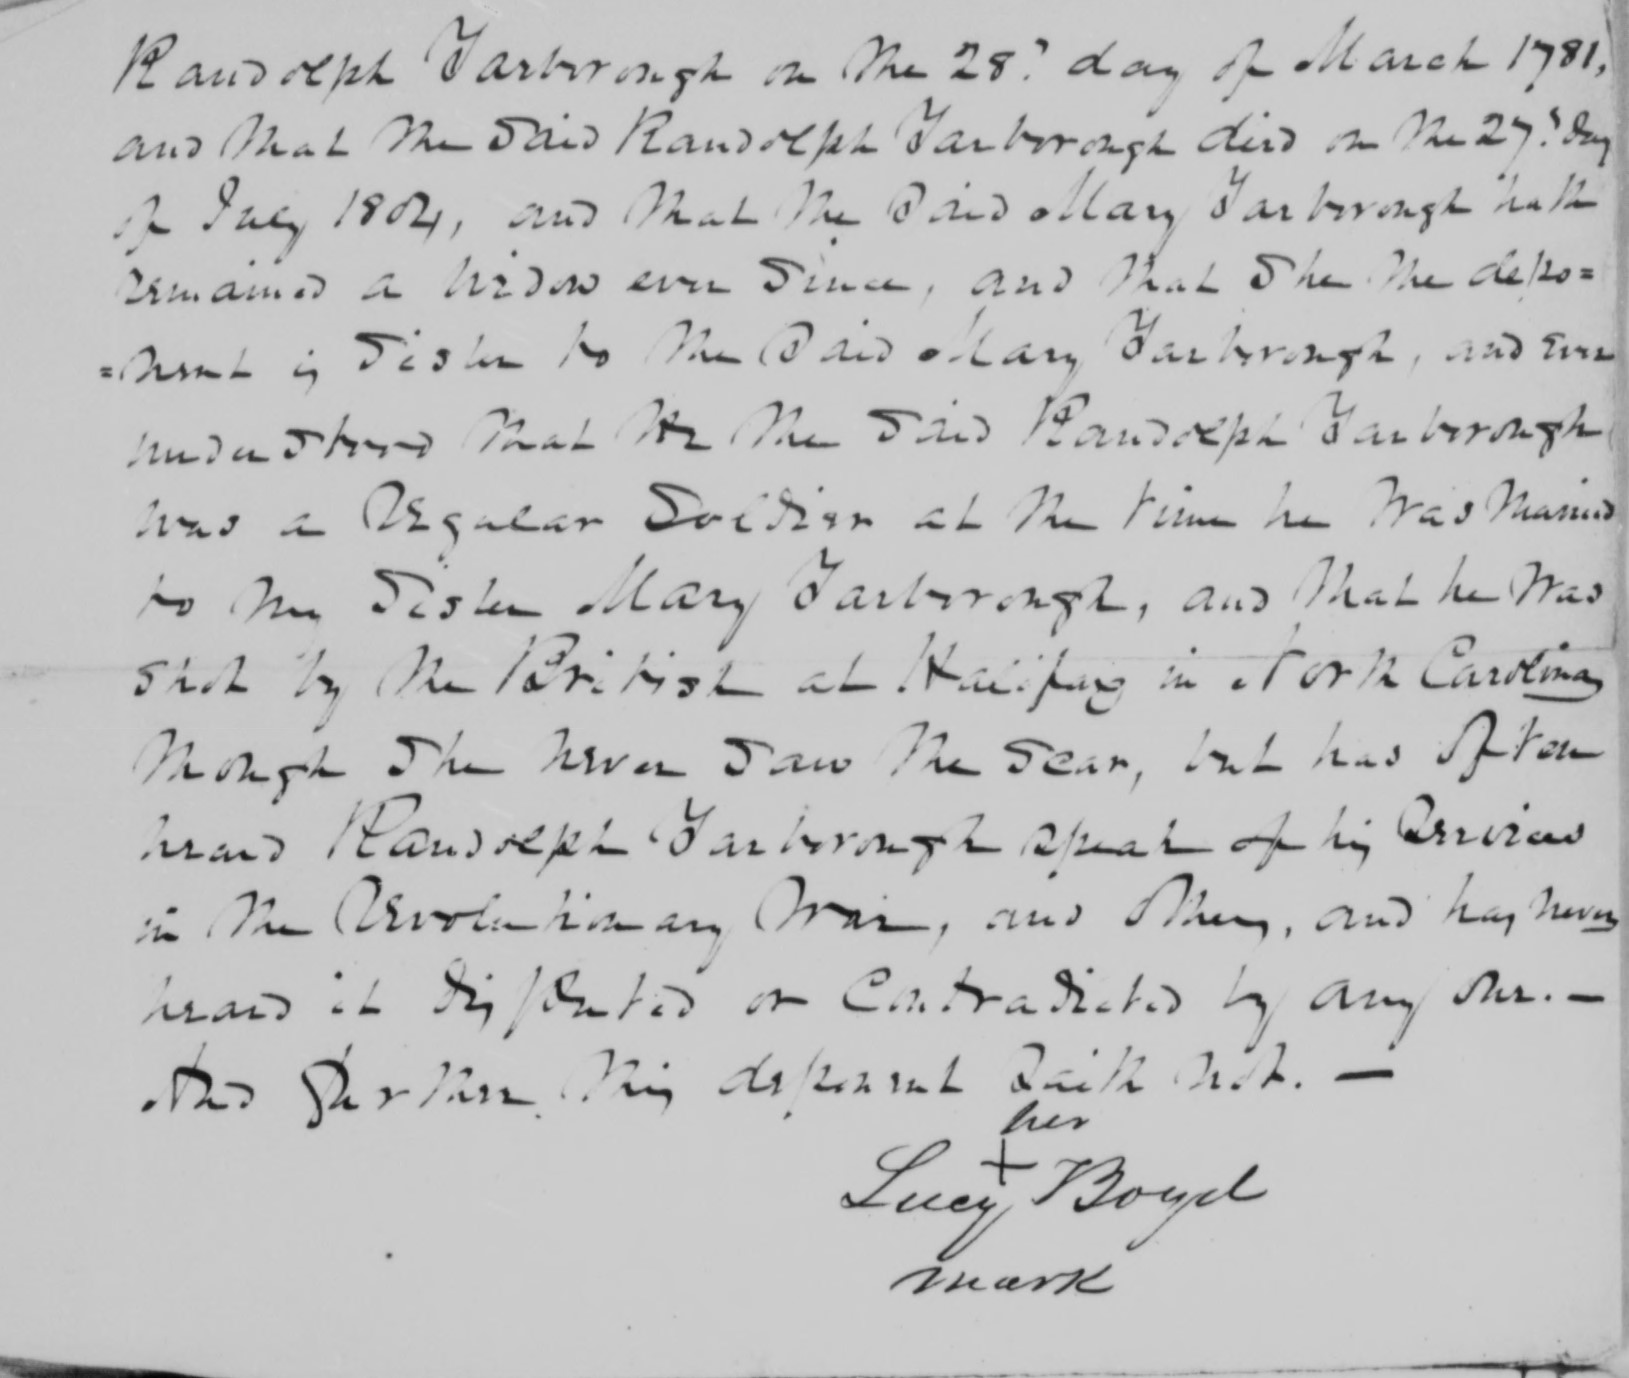 Randolph Yarborough on the 28? day of March 1781,
and that the said Randolph Yarborough died on the 27? day
of July 1804, and that the said Mary Yarborough hath
remained a widow ever since, and that she the depo=
=nent is sister to the said Mary Yarborough, and ever
understood that he the said Randolph Yarborough
was a Regular Soldier at the time he was Married
to my Sister Mary Yarborough, and that he was
shot by the British at Halifax in North Carolina
though she never saw the scar, but has often
heard Randolph Yarborough speak of his Services
in the Revolutionary War, and others, and has never
heard it disputed or Contradicted by any one. —
And further this deponent saith not. —
her
Lucy + Boyd
mark